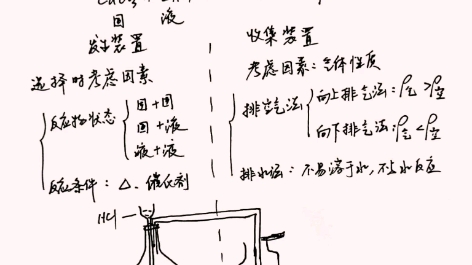 固 液
发生装置
选择时考虑因素
反应物状态
固+固
固+液
液+液
反应条件：△、催化剂
HCl
收集装置
考虑因素：气体性质
排空气法
向上排气法：ρ气>ρ空
向下排气法：ρ气<ρ空
排水法：不易溶于水，不与水反应